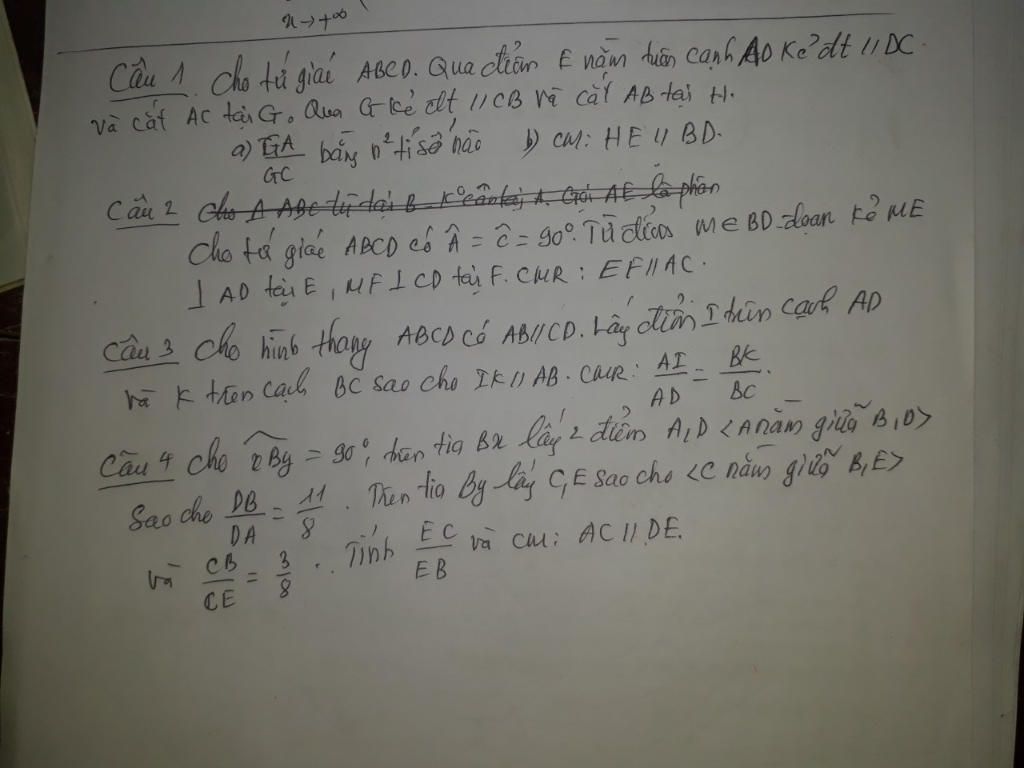 n → +∞
Câu 1 Cho tứ giác ABCD. Qua điểm E nằm trên cạnh AD kẻ đt // DC.
và cắt AC tại G. Qua G kẻ đt // CB và cắt AB tại H.
a) GA/GC bằng n² tỉ số nào b) CM: HE // BD.
Câu 2 Cho Δ ABC tù tại B K° cân tại A. Gọi AE là phân
Cho tứ giác ABCD có Â = Ĉ = 90°. Từ điểm M ∈ BD đoạn kẻ ME
⊥ AD tại E, MF ⊥ CD tại F. CMR: EF // AC.
Câu 3 Cho hình thang ABCD có AB // CD. Lấy điểm I trên cạnh AD
và K trên cạch BC sao cho IK // AB. CMR: AI/AD = BK/BC.
Câu 4 Cho xBy = 90°, trên tia Bx lấy 2 điểm A, D <A nằm giữa B, D>
Sao cho DB/DA = 11/8. Trên tia By lấy C, E sao cho <C nằm giữa B, E>
và CB/CE = 3/8. Tính EC/EB và CM: AC // DE.